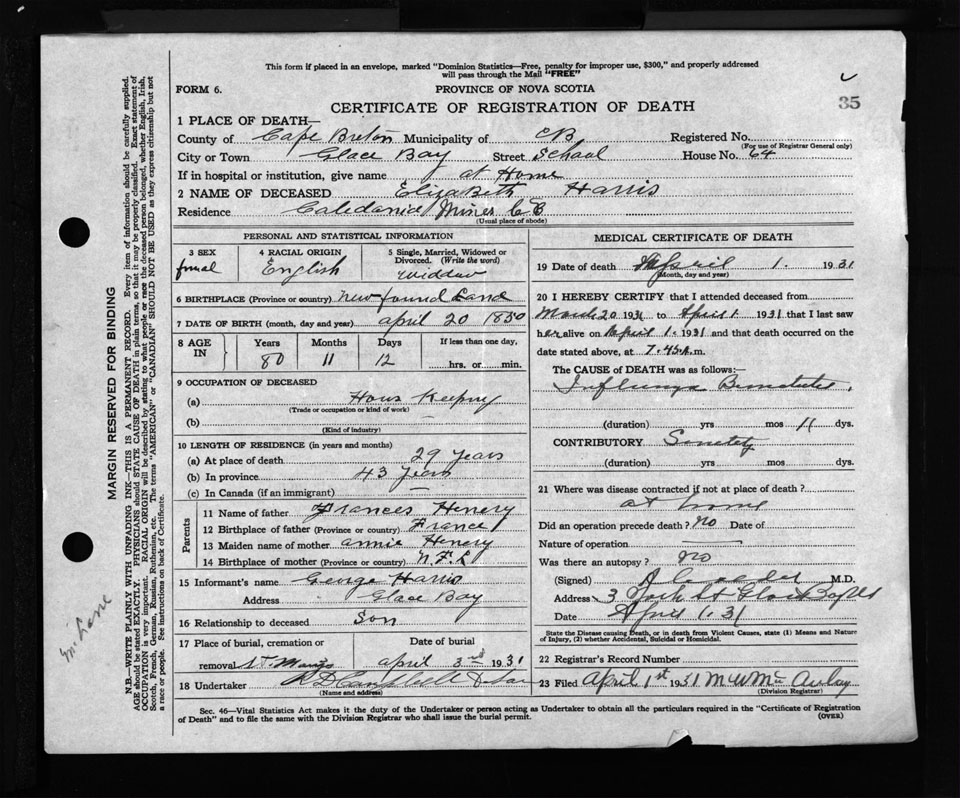 This form if placed in an envelope, marked "Dominion Statistics—Free, penalty for improper use, $300," and properly addressed
will pass through the Mail "FREE"
FORM 6.
PROVINCE OF NOVA SCOTIA
35
CERTIFICATE OF REGISTRATION OF DEATH
1 PLACE OF DEATH—
County of Cape Breton Municipality of CB Registered No.
(For use of Registrar General only)
City or Town Glace Bay Street School House No. 64
If in hospital or institution, give name at Home
2 NAME OF DECEASED Elizabeth Harris
Residence Caledonia Mines C B
(Usual place of abode)
PERSONAL AND STATISTICAL INFORMATION
3 SEX 4 RACIAL ORIGIN 5 Single, Married, Widowed or
Divorced. (Write the word)
femal English widdow
6 BIRTHPLACE (Province or country) New found Land
7 DATE OF BIRTH (month, day and year) april 20 1850
8 AGE IN Years Months Days If less than one day,
80 11 12 hrs. or min.
9 OCCUPATION OF DECEASED
(a) Hous Keeping
(Trade or occupation or kind of work)
(b)
(Kind of industry)
10 LENGTH OF RESIDENCE (in years and months)
(a) At place of death 29 years
(b) In province 43 years
(c) In Canada (if an immigrant)
Parents
11 Name of father Frances Henery
12 Birthplace of father (Province or country) France
13 Maiden name of mother annie Henery
14 Birthplace of mother (Province or country) N.F.L
15 Informant's name George Harris
Address Glace Bay
16 Relationship to deceased Son
17 Place of burial, cremation or Date of burial
removal St. Marys april 3rd 1931
18 Undertaker
(Name and address)
MEDICAL CERTIFICATE OF DEATH
19 Date of death April 1. 1931
(Month, day and year)
20 I HEREBY CERTIFY that I attended deceased from
March 20 1931 to April 1 1931 that I last saw
her alive on April 1. 1931 and that death occurred on the
date stated above, at 7.45 A.m.
The CAUSE OF DEATH was as follows:—
Influenza
(duration) yrs mos 11 dys.
CONTRIBUTORY
(duration) yrs mos dys.
21 Where was disease contracted if not at place of death?
at home
Did an operation precede death? no Date of
Nature of operation
Was there an autopsy? no
(Signed) M.D.
Address 3 York St
Date April 1. 31
State the Disease causing Death, or in death from Violent Causes, state (1) Means and Nature
of Injury, (2) whether Accidental, Suicidal or Homicidal.
22 Registrar's Record Number
23 Filed April 1st 1931
(Division Registrar)
Sec. 46—Vital Statistics Act makes it the duty of the Undertaker or person acting as Undertaker to obtain all the particulars required in the "Certificate of Registration
of Death" and to file the same with the Division Registrar who shall issue the burial permit.
(OVER)
MARGIN RESERVED FOR BINDING
N.B.—WRITE PLAINLY WITH UNFADING INK—THIS IS A PERMANENT RECORD. Every item of information should be carefully supplied.
AGE should be stated EXACTLY. PHYSICIANS should STATE CAUSE OF DEATH in plain terms, so that it may be properly classified. Exact statement of
OCCUPATION is very important. RACIAL ORIGIN will be described by stating to what people or race the deceased person belonged, whether English, Irish,
Scotch, French, German, Russian, Ruthenian, etc. The terms "AMERICAN" or "CANADIAN" SHOULD NOT BE USED as they express citizenship but not
a race or people. See instructions on back of Certificate.